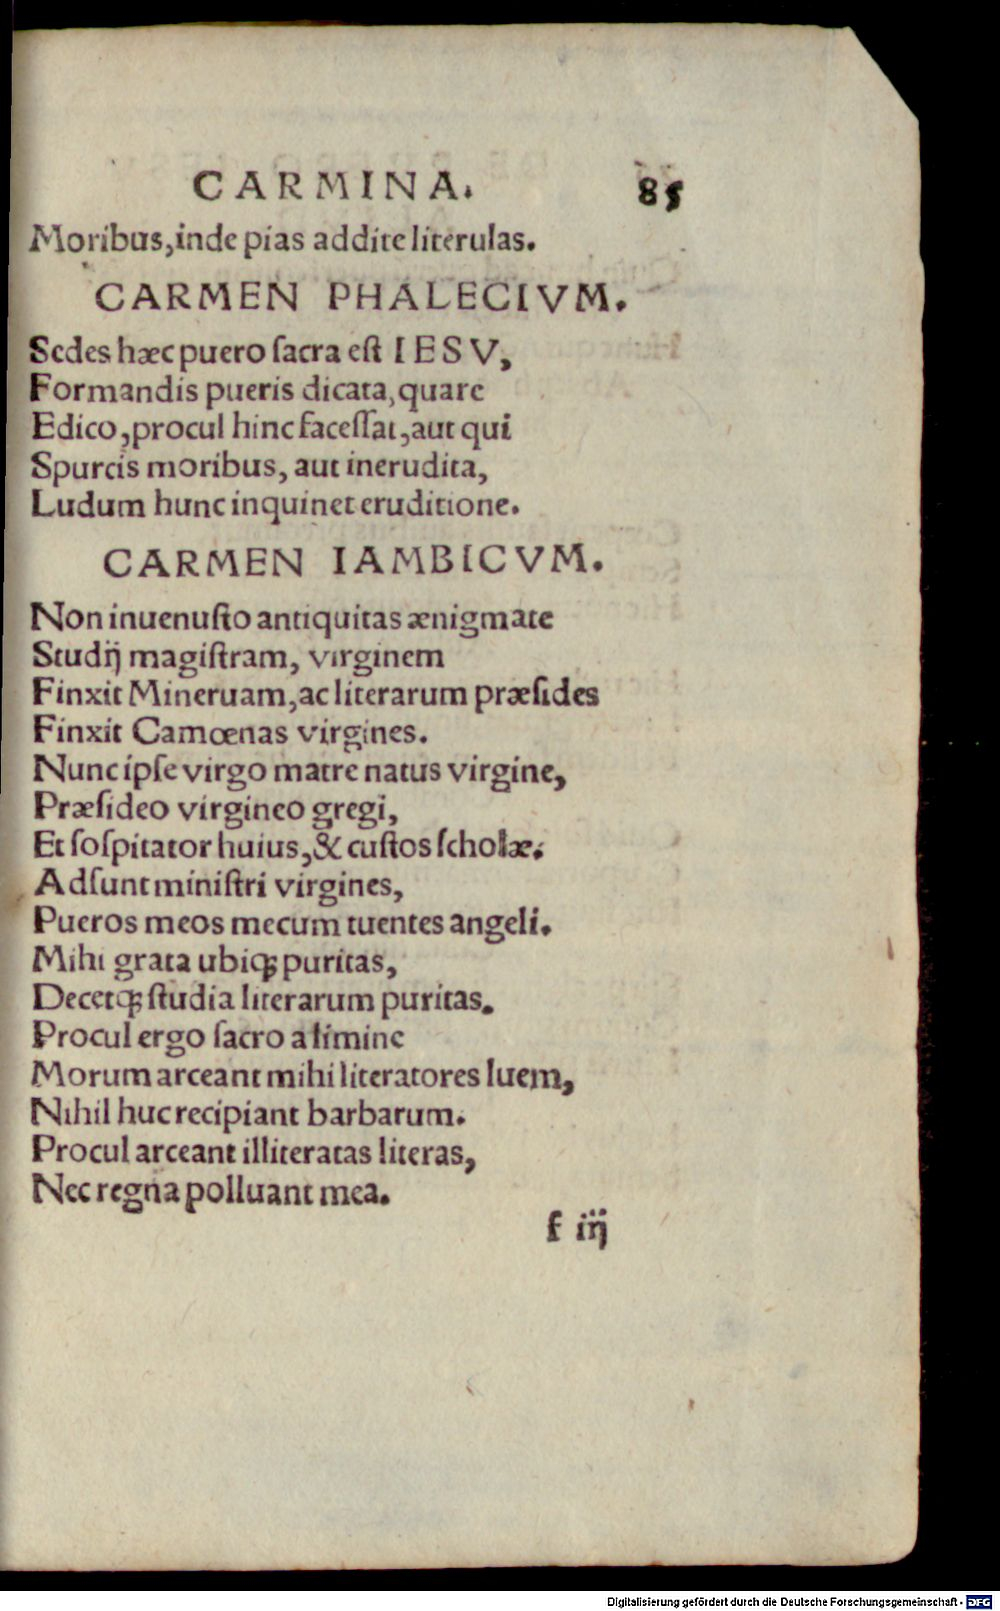 CARMINA. 85
Moribus, inde pias addite literulas.
CARMEN PHALECIVM.
Sedes hæc puero ſacra eſt IESV,
Formandis pueris dicata, quare
Edico, procul hinc faceſſat, aut qui
Spurcis moribus, aut inerudita,
Ludum hunc inquinet eruditione.
CARMEN IAMBICVM.
Non inuenuſto antiquitas ænigmate
Studij magiſtram, virginem
Finxit Mineruam, ac literarum præſides
Finxit Camœnas virgines.
Nunc ipſe virgo matre natus virgine,
Præſideo virgineo gregi,
Et ſoſpitator huius, & cuſtos ſcholæ.
Adſunt miniſtri virgines,
Pueros meos mecum tuentes angeli.
Mihi grata ubiqꝫ puritas,
Decetqꝫ ſtudia literarum puritas.
Procul ergo ſacro a limine
Morum arceant mihi literatores luem,
Nihil huc recipiant barbarum.
Procul arceant illiteratas literas,
Nec regna polluant mea.
f iij
Digitalisierung gefördert durch die Deutsche Forschungsgemeinschaft - DFG